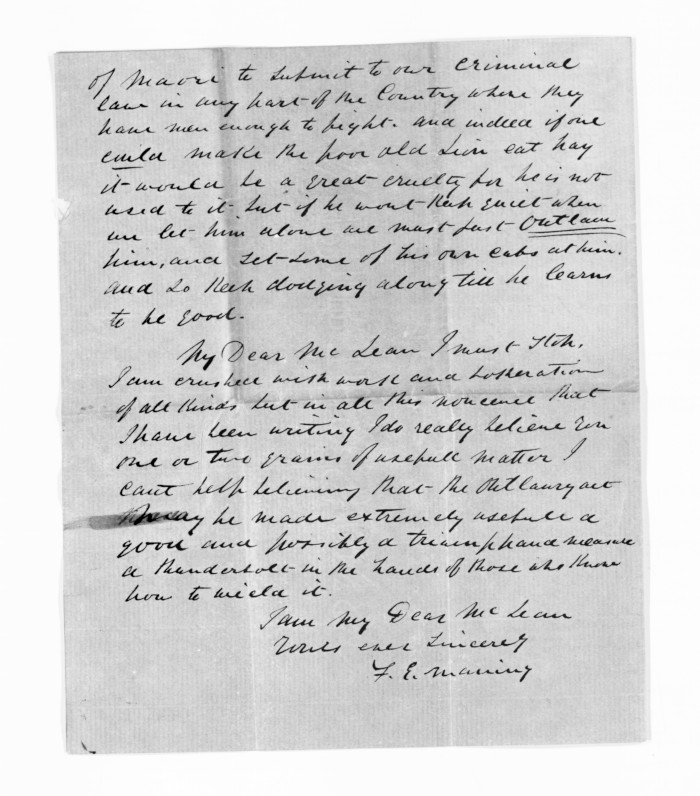 of Maori to submit to our criminal
law in any part of the Country where they
have men enough to fight. and indeed if one
could make the poor old Lion eat hay
it would be a great cruelty for he is not
used to it but if he wont keep quiet when
we let him alone we must just Outlaw
him, and set some of his own cubs at him.
and so keep dodging along till he learns
to be good.
My Dear Mc Lean I must stop,
I am crushed with work and botheration
of all kinds but in all this noncence that
I have been writing I do really believe you
one or two grains of usefull matter I
cant help believing that the Outlawry act
may be made extremely usefull a
good and possibly a triumphand measure
a thunderbolt in the hands of those who know
how to wield it.
I am My Dear Mc Lean
Yours ever Sincerely
F. E. Maning